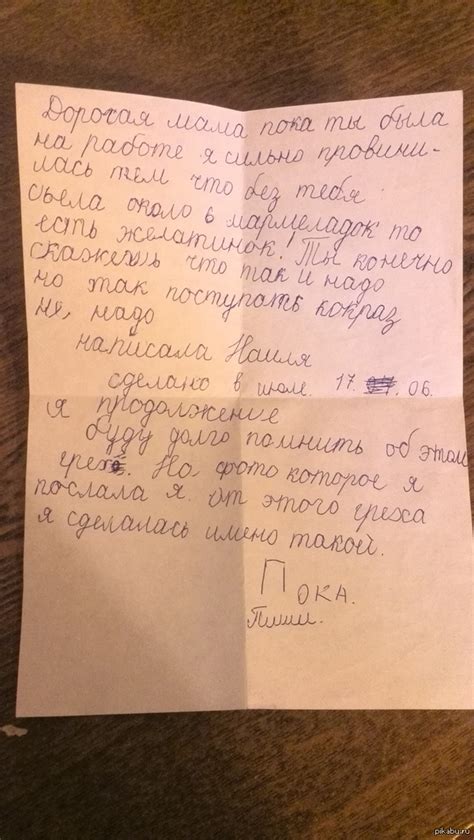 Дорогая мама пока ты была
на работе я сильно провини-
лась тем что без тебя
съела около 6 мармеладок то
есть желатинок! Ты конечно
скажешь что так и надо
но так поступать кокраз
не надо
написала Наиля
сделано в июле. 17. 06.
я продолжение
буду долго помнить об этом
грехе. На фото которое я
послала я от этого греха
я сделалась имено такой.
Пока.
Пиши.
pikabu.ru